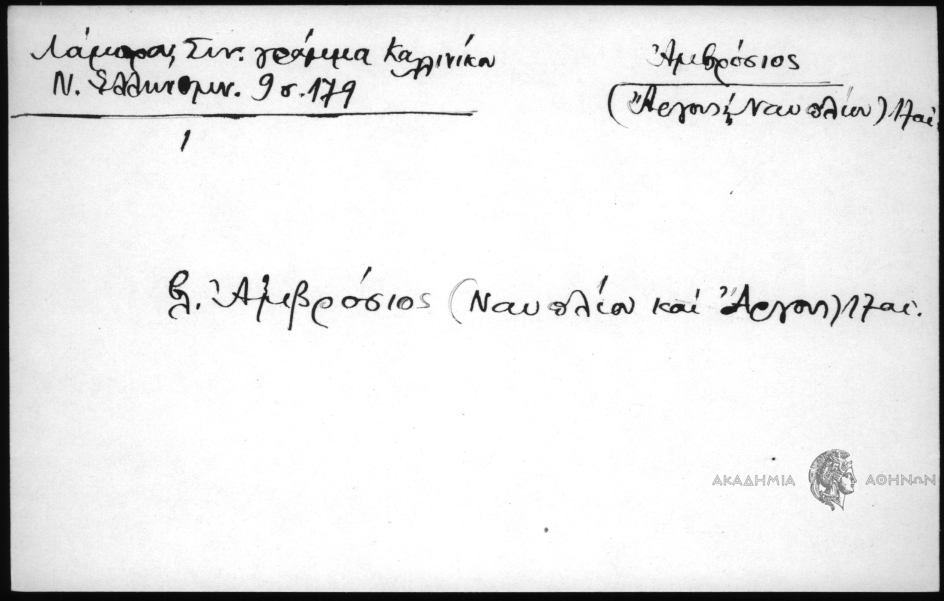 Λάμπρου, Συν. γράμμα Καλλινίκου
Ν. Ἑλληνομν. 9 σ. 179
1
Ἀμβρόσιος
(Ἄργους κ Ναυπλίου) 17 αἰ.
βλ. Ἀμβρόσιος (Ναυπλίου καὶ Ἄργους) 17 αἰ.
ΑΚΑΔΗΜΙΑ ΑΘΗΝΩΝ